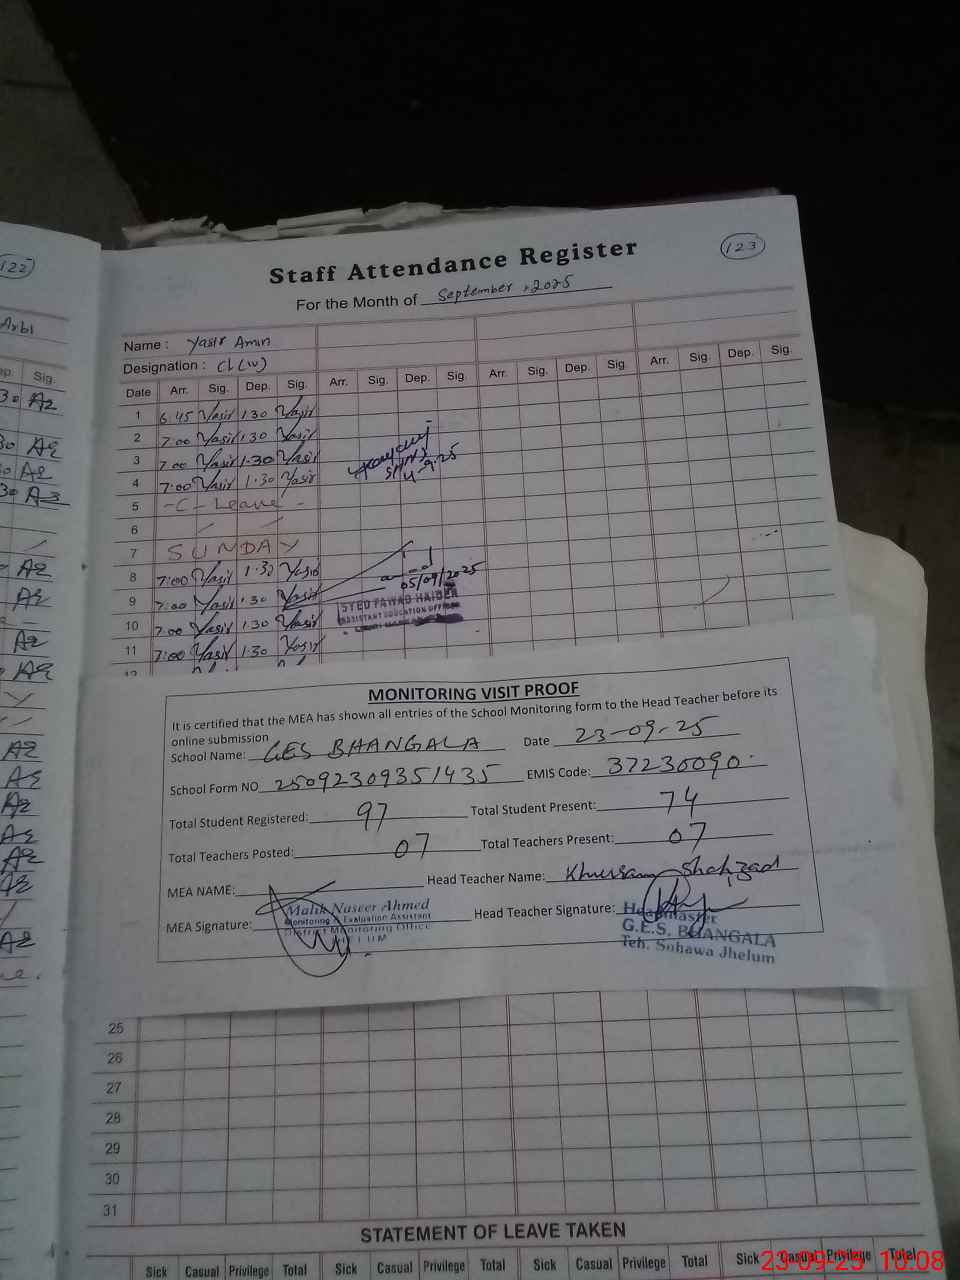 122
123
Staff Attendance Register
For the Month of September, 2025
Name: Yasir Amin
Designation: CL(W)
Date Arr. Sig. Dep. Sig. Arr. Sig. Dep. Sig. Arr. Sig. Dep. Sig. Arr. Sig. Dep. Sig.
1 6:45 Yasir 1:30 Yasir
2 7:00 Yasir 1:30 Yasir
3 7:00 Yasir 1:30 Yasir
4 7:00 Yasir 1:30 Yasir
5 -C-Leave-
6
7 SUNDAY
8 7:00 Yasir 1:30 Yasir
9 7:00 Yasir 1:30 Yasir
10 7:00 Yasir 1:30 Yasir
11 7:00 Yasir 1:30 Yasir
12
4-9-25
05/09/2025
SYED FAWAD HAIDER
ASSISTANT EDUCATION OFFICER
MONITORING VISIT PROOF
It is certified that the MEA has shown all entries of the School Monitoring form to the Head Teacher before its
online submission
School Name: GES BHANGALA Date 23-09-25
School Form NO 25092309351435 EMIS Code: 37230090
Total Student Registered: 97 Total Student Present: 74
Total Teachers Posted: 07 Total Teachers Present: 07
MEA NAME: Head Teacher Name: Khurram Shahzad
MEA Signature: Head Teacher Signature:
Malik Naseer Ahmed
Monitoring & Evaluation Assistant
District Monitoring Office
JHELUM
Headmaster
G.E.S. BHANGALA
Teh. Sohawa Jhelum
25
26
27
28
29
30
31
STATEMENT OF LEAVE TAKEN
Sick Casual Privilege Total Sick Casual Privilege Total Sick Casual Privilege Total Sick Casual Privilege Total
23-09-25 10:08